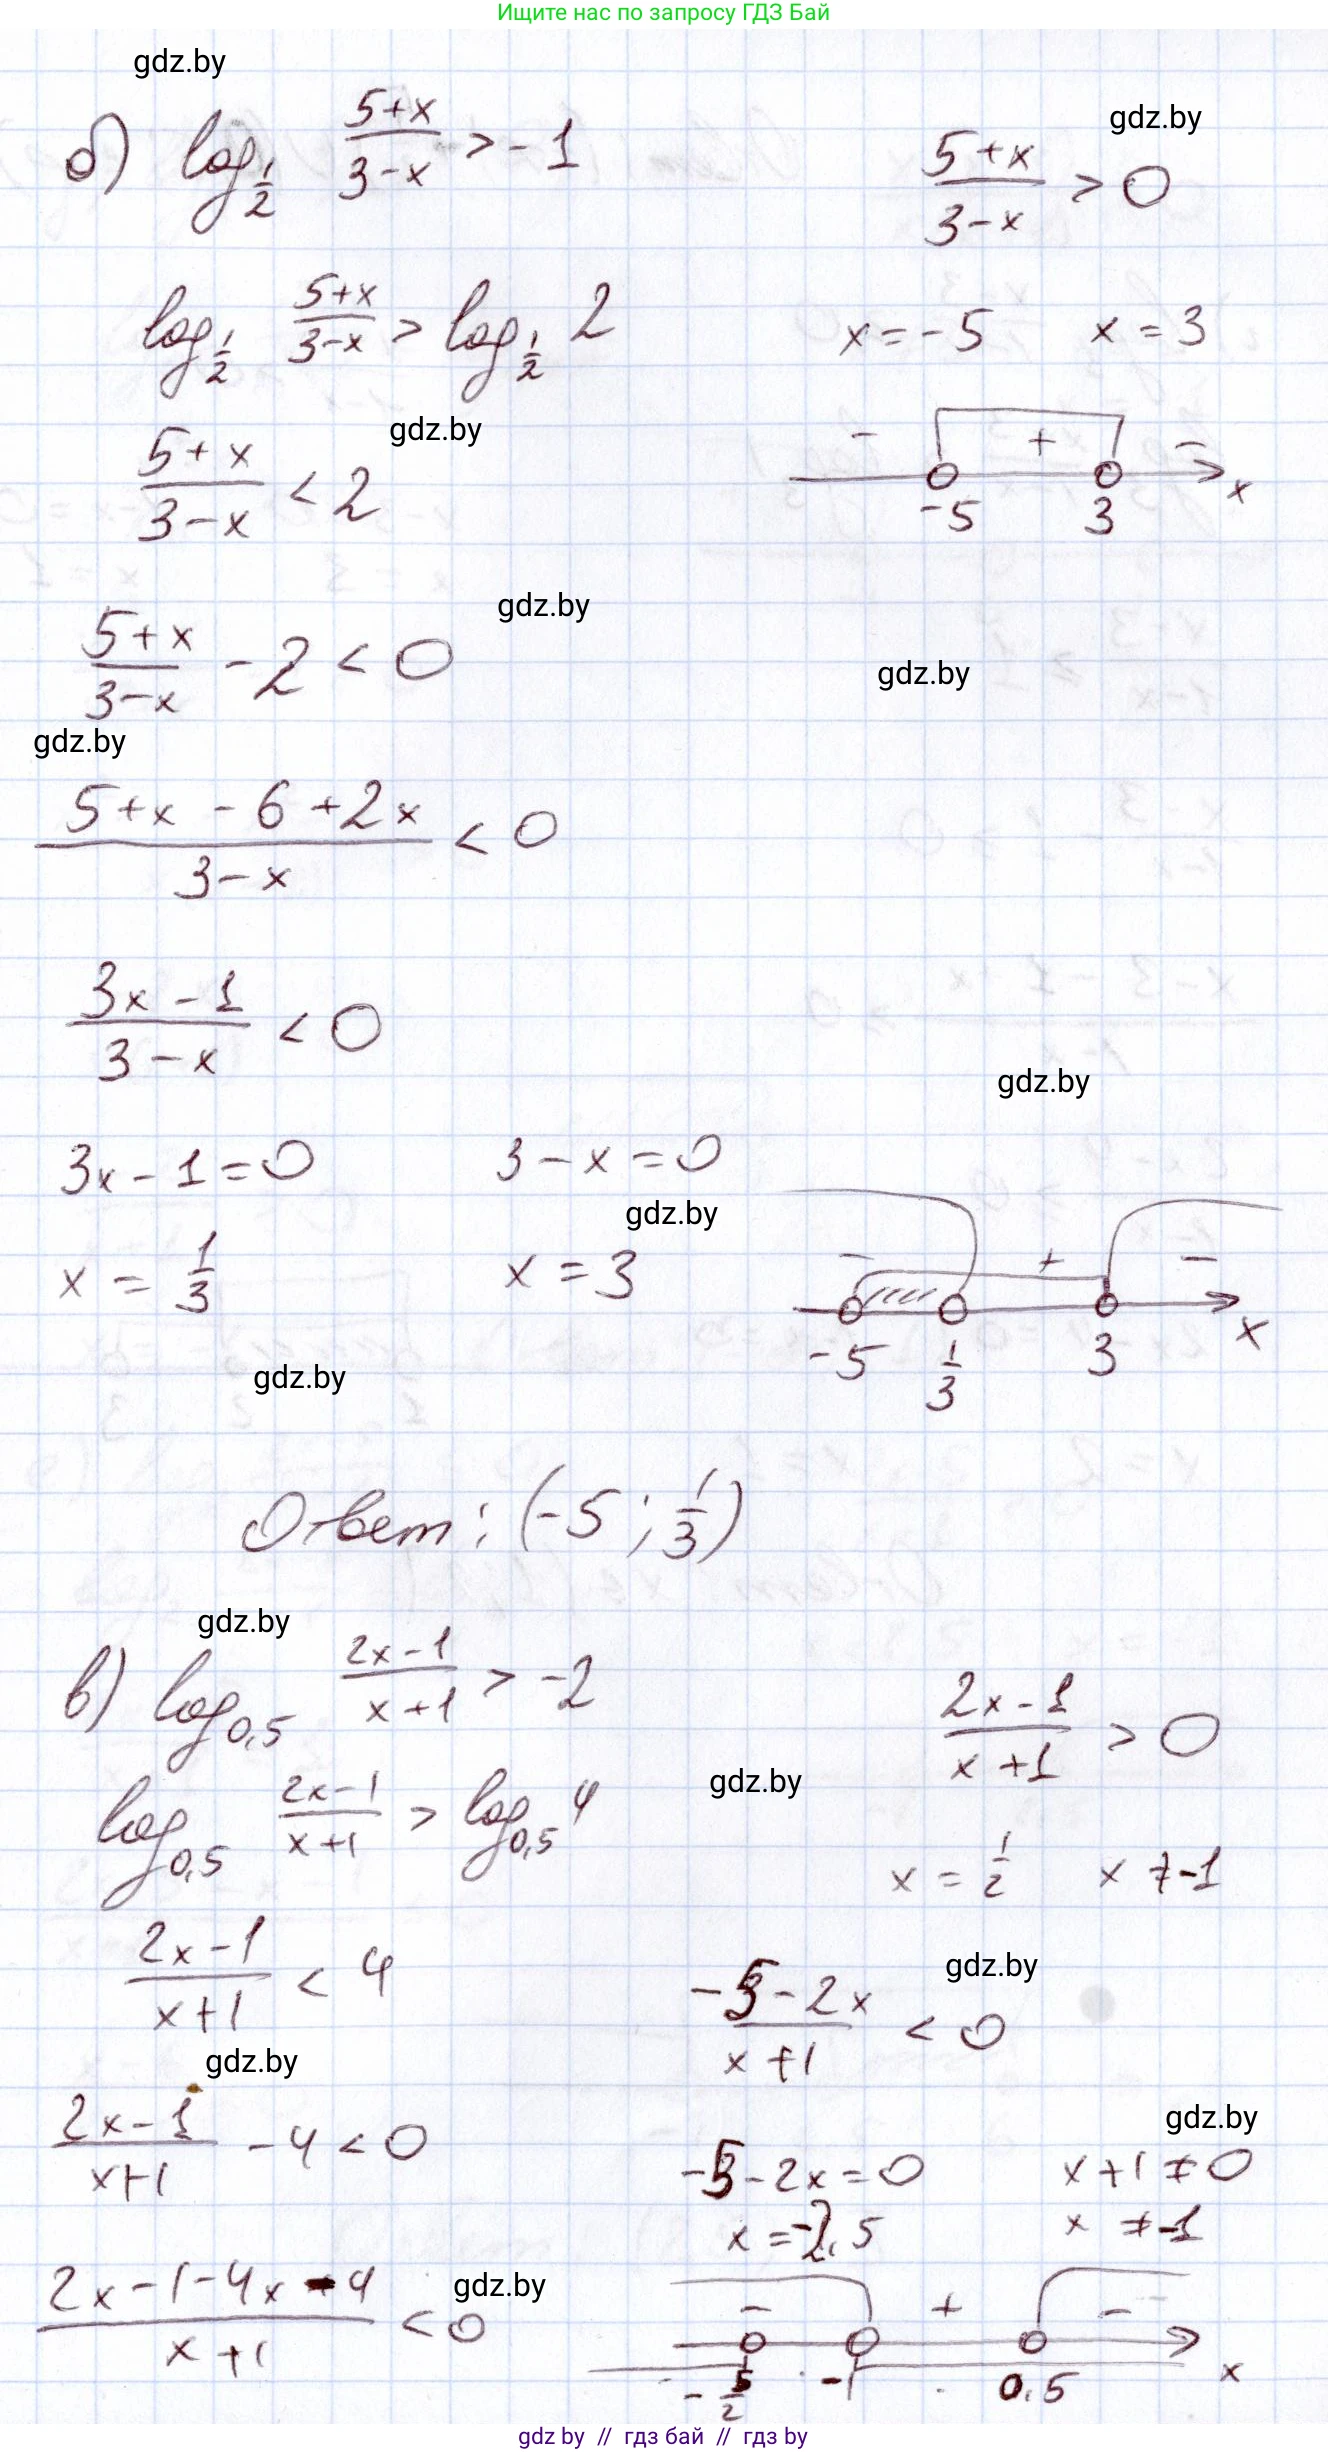 Ищите нас по запросу ГДЗ Бай
gdz.by
б) log_{1/2} (5+x)/(3-x) > -1
gdz.by
(5+x)/(3-x) > 0
log_{1/2} (5+x)/(3-x) > log_{1/2} 2
x = -5 x = 3
gdz.by
(5+x)/(3-x) < 2
- + -
-5 3 x
gdz.by
(5+x)/(3-x) - 2 < 0
gdz.by
gdz.by
(5+x-6+2x)/(3-x) < 0
(3x-1)/(3-x) < 0
gdz.by
3x-1=0 3-x=0
gdz.by
x = 1/3 x = 3
- + -
-5 1/3 3 x
gdz.by
Ответ: (-5; 1/3)
gdz.by
в) log_{0,5} (2x-1)/(x+1) > -2
(2x-1)/(x+1) > 0
gdz.by
log_{0,5} (2x-1)/(x+1) > log_{0,5} 4
x = 1/2 x ≠ -1
(2x-1)/(x+1) < 4
gdz.by
(-5-2x)/(x+1) < 0
gdz.by
(2x-1)/(x+1) - 4 < 0
gdz.by
-5-2x=0 x+1≠0
x=-2,5 x ≠-1
(2x-1-4x-4)/(x+1) < 0
gdz.by
- + -
-5/2 -1 0,5 x
gdz by // гдз бай // gdz by